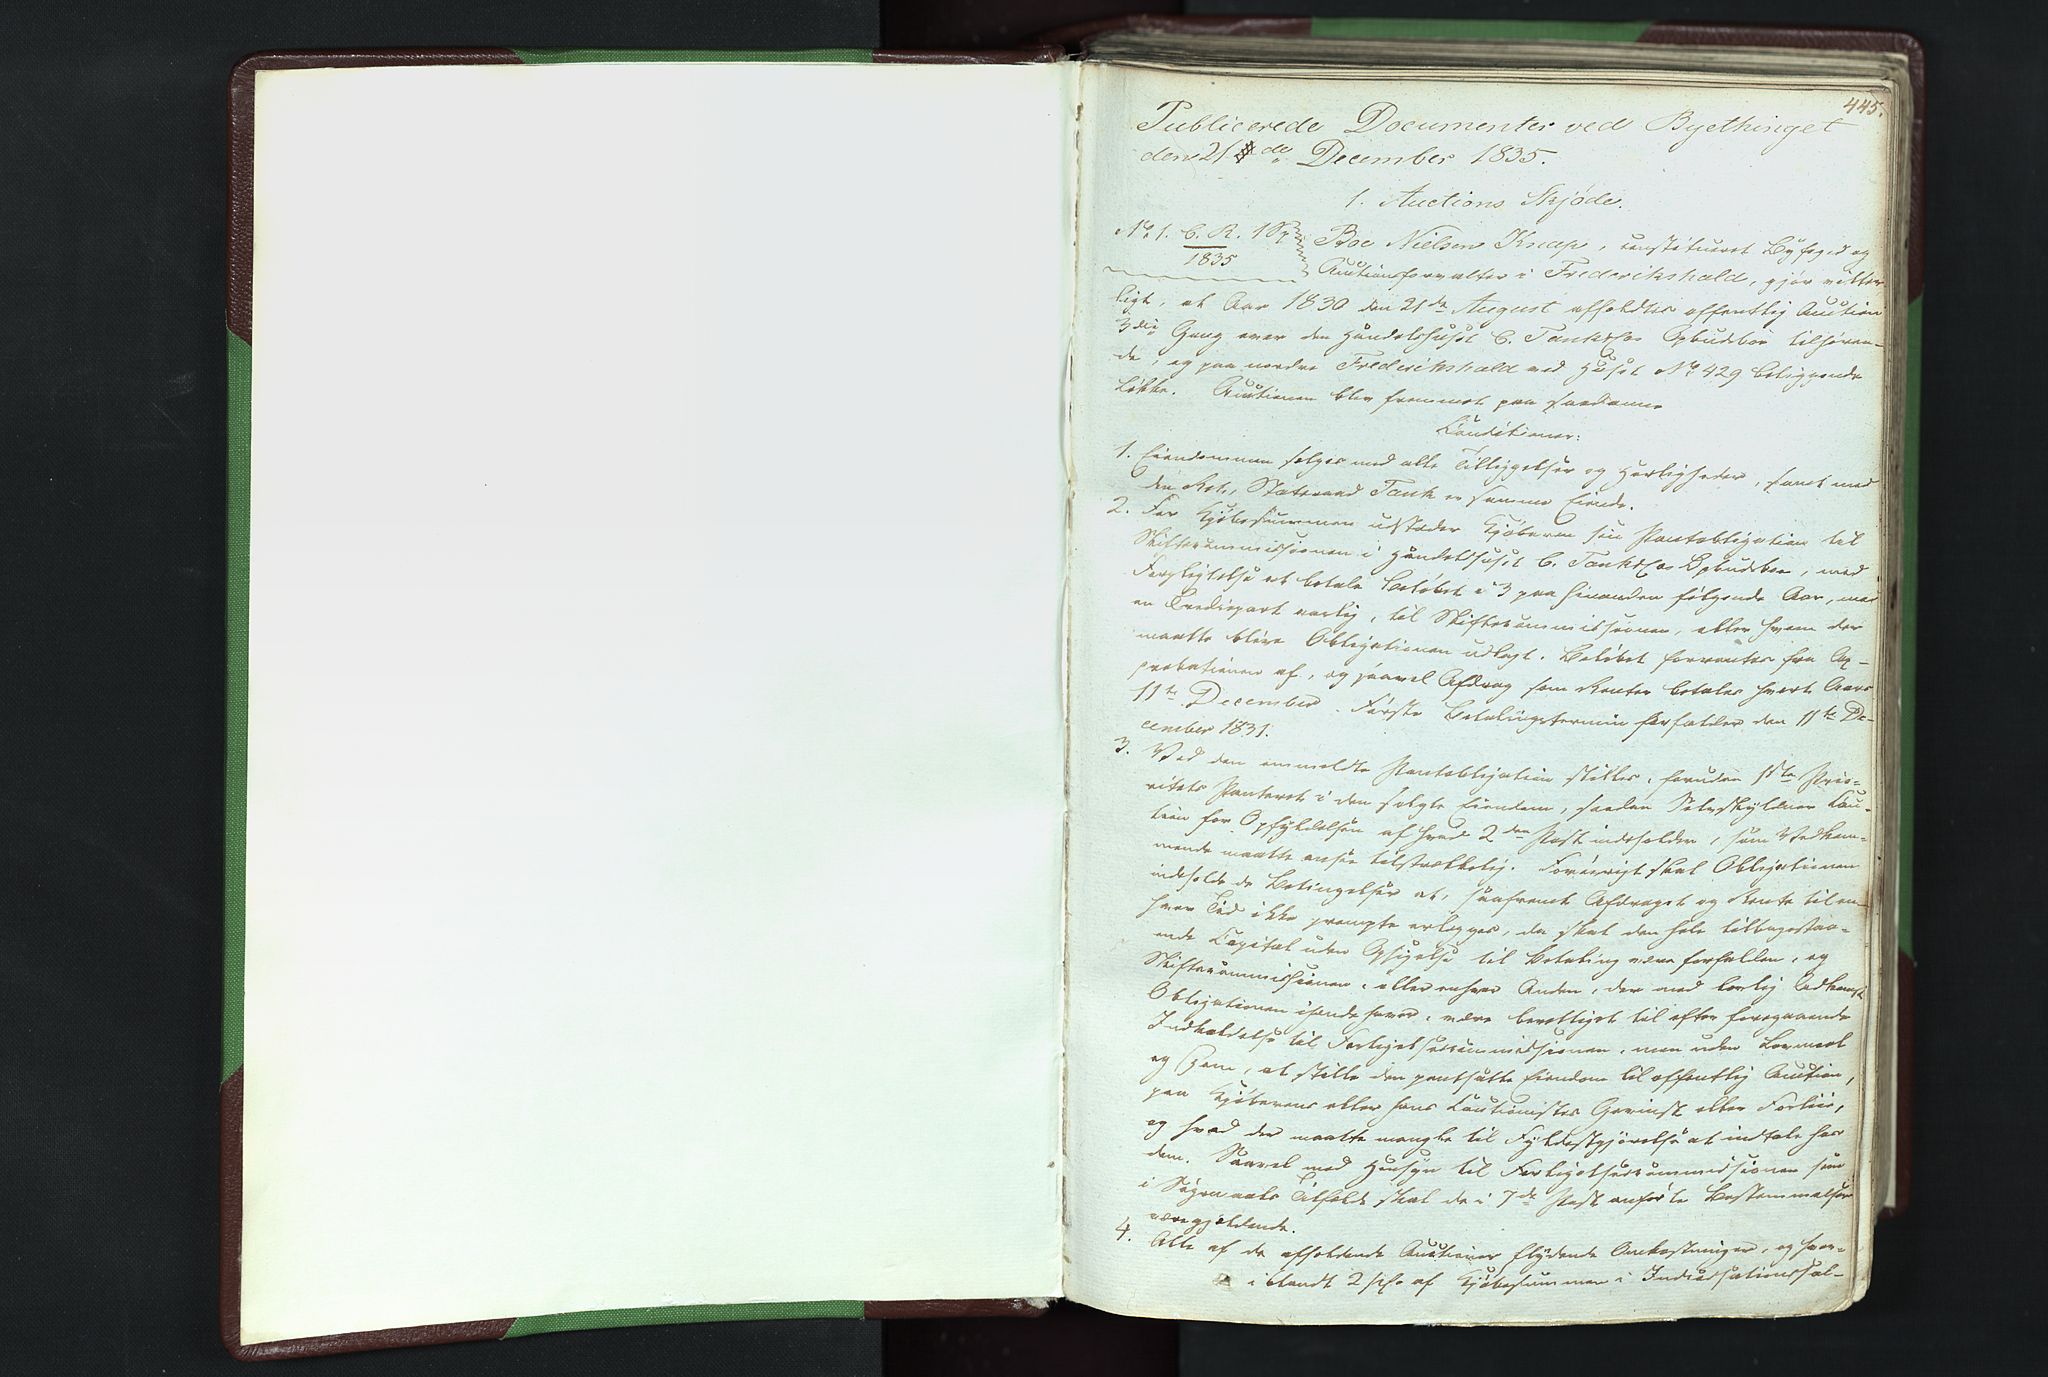 445.
Publicerede Documenter ved Byethinget
den 21de December 1835.
1. Auctions Skjøde.
No 1. C. R. 1 Sp
1835
Boe Nielsen Knap, constitueret Byfoged og
Auctionsforvalter i Frederikshald, gjør vitter-
ligt, at Aar 1830 den 21de August afholdtes offentlig Auction
3die Gang over den Handelshuset C. Tank & Co Opbudsboe tilhøren-
de, og paa nordre Frederikshald ved Huset No 429 beliggende
Løkke. Auctionen blev fremmet paa saadanne
Conditioner:
1. Eiendommen sælges med alle Tilliggelser og Herligheder, samt med
den Ret, Statsraad Tank er samme Eiende.
2. For Kjøbesummen udsteder Kjøberen sin Pantobligation til
Skiftecommissionen i Handelshuset C. Tank & Co Opbudsboe, med
Forpligtelse at betale Beløbet i 3 paa hinanden følgende Aar, med
en Trediepart aarlig, til Skiftecommissionen, eller hvem der
maatte blive Obligationen udlagt. Beløbet forrentes fra Ap-
probationen af, og saavel Afdrag som Renter betales hvert Aars
11te December. Første Betalingstermin forfalder den 11te De-
cember 1831.
3. Ved den ommeldte Pantobligation stilles, foruden 1ste Prio-
ritets Panteret i den solgte Eiendom, saadan Selvskyldner Cau-
tion for Opfyldelsen af hvad 2den Post indeholder, som Vedkom-
mende maatte ansee tilstrækkelig. Forøvrigt skal Obligationen
indeholde de Betingelser at, saafremt Afdraget og Rente til en-
hver Tid ikke prompte erlægges, da skal den hele tilbagestaa-
ende Capital uden Opsigelse til Betaling være forfalden, og
Skiftecommissionen, eller enhver Anden, der med lovlig Adkomst
Obligationen ihændehaver, være berettiget til efter foregaaende
Indkaldelse til Forligelsescommissionen, men uden Lovmaal
og Dom, at stille den pantsatte Eiendom til offentlig Auction,
paa Kjøberens eller hans Cautionisters Gevinst eller Forliis,
og hvad der maatte mangle til Fyldestgjørelse at indtale hos
dem. Saavel med Hensyn til Forligelsescommissionen som
i Søgmaals Tilfælde skal de i 7de Post anførte Bestemmelser
være gjældende.
4. Alle af de afholdende Auctioner flydende Omkostninger, og hvor-
iblandt 2 pCt af Kjøbesummen i Incassationssal-